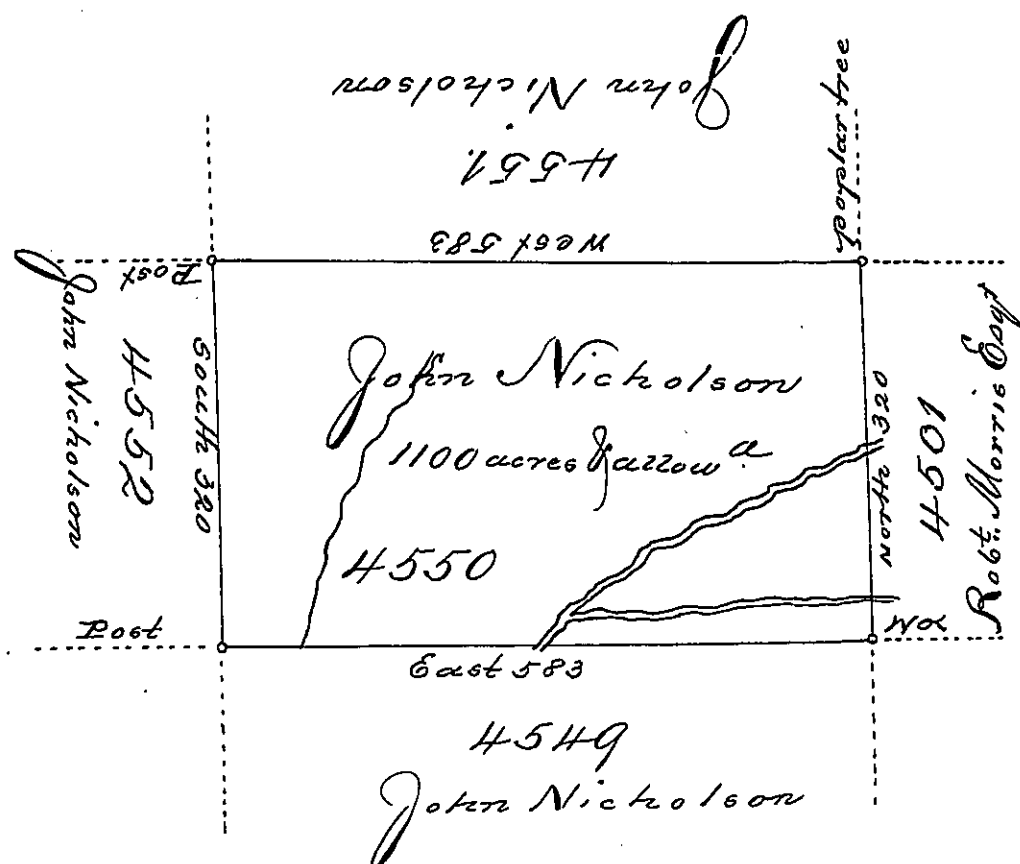 John Nicholson
4551.
poplar tree
West 583
Post
John Nicholson
4552
South 320
John Nicholson
1100 acres & allow a
4550
North 320
4501
Robt. Morris Esqr
Post
W Oa
East 583
4549
John Nicholson